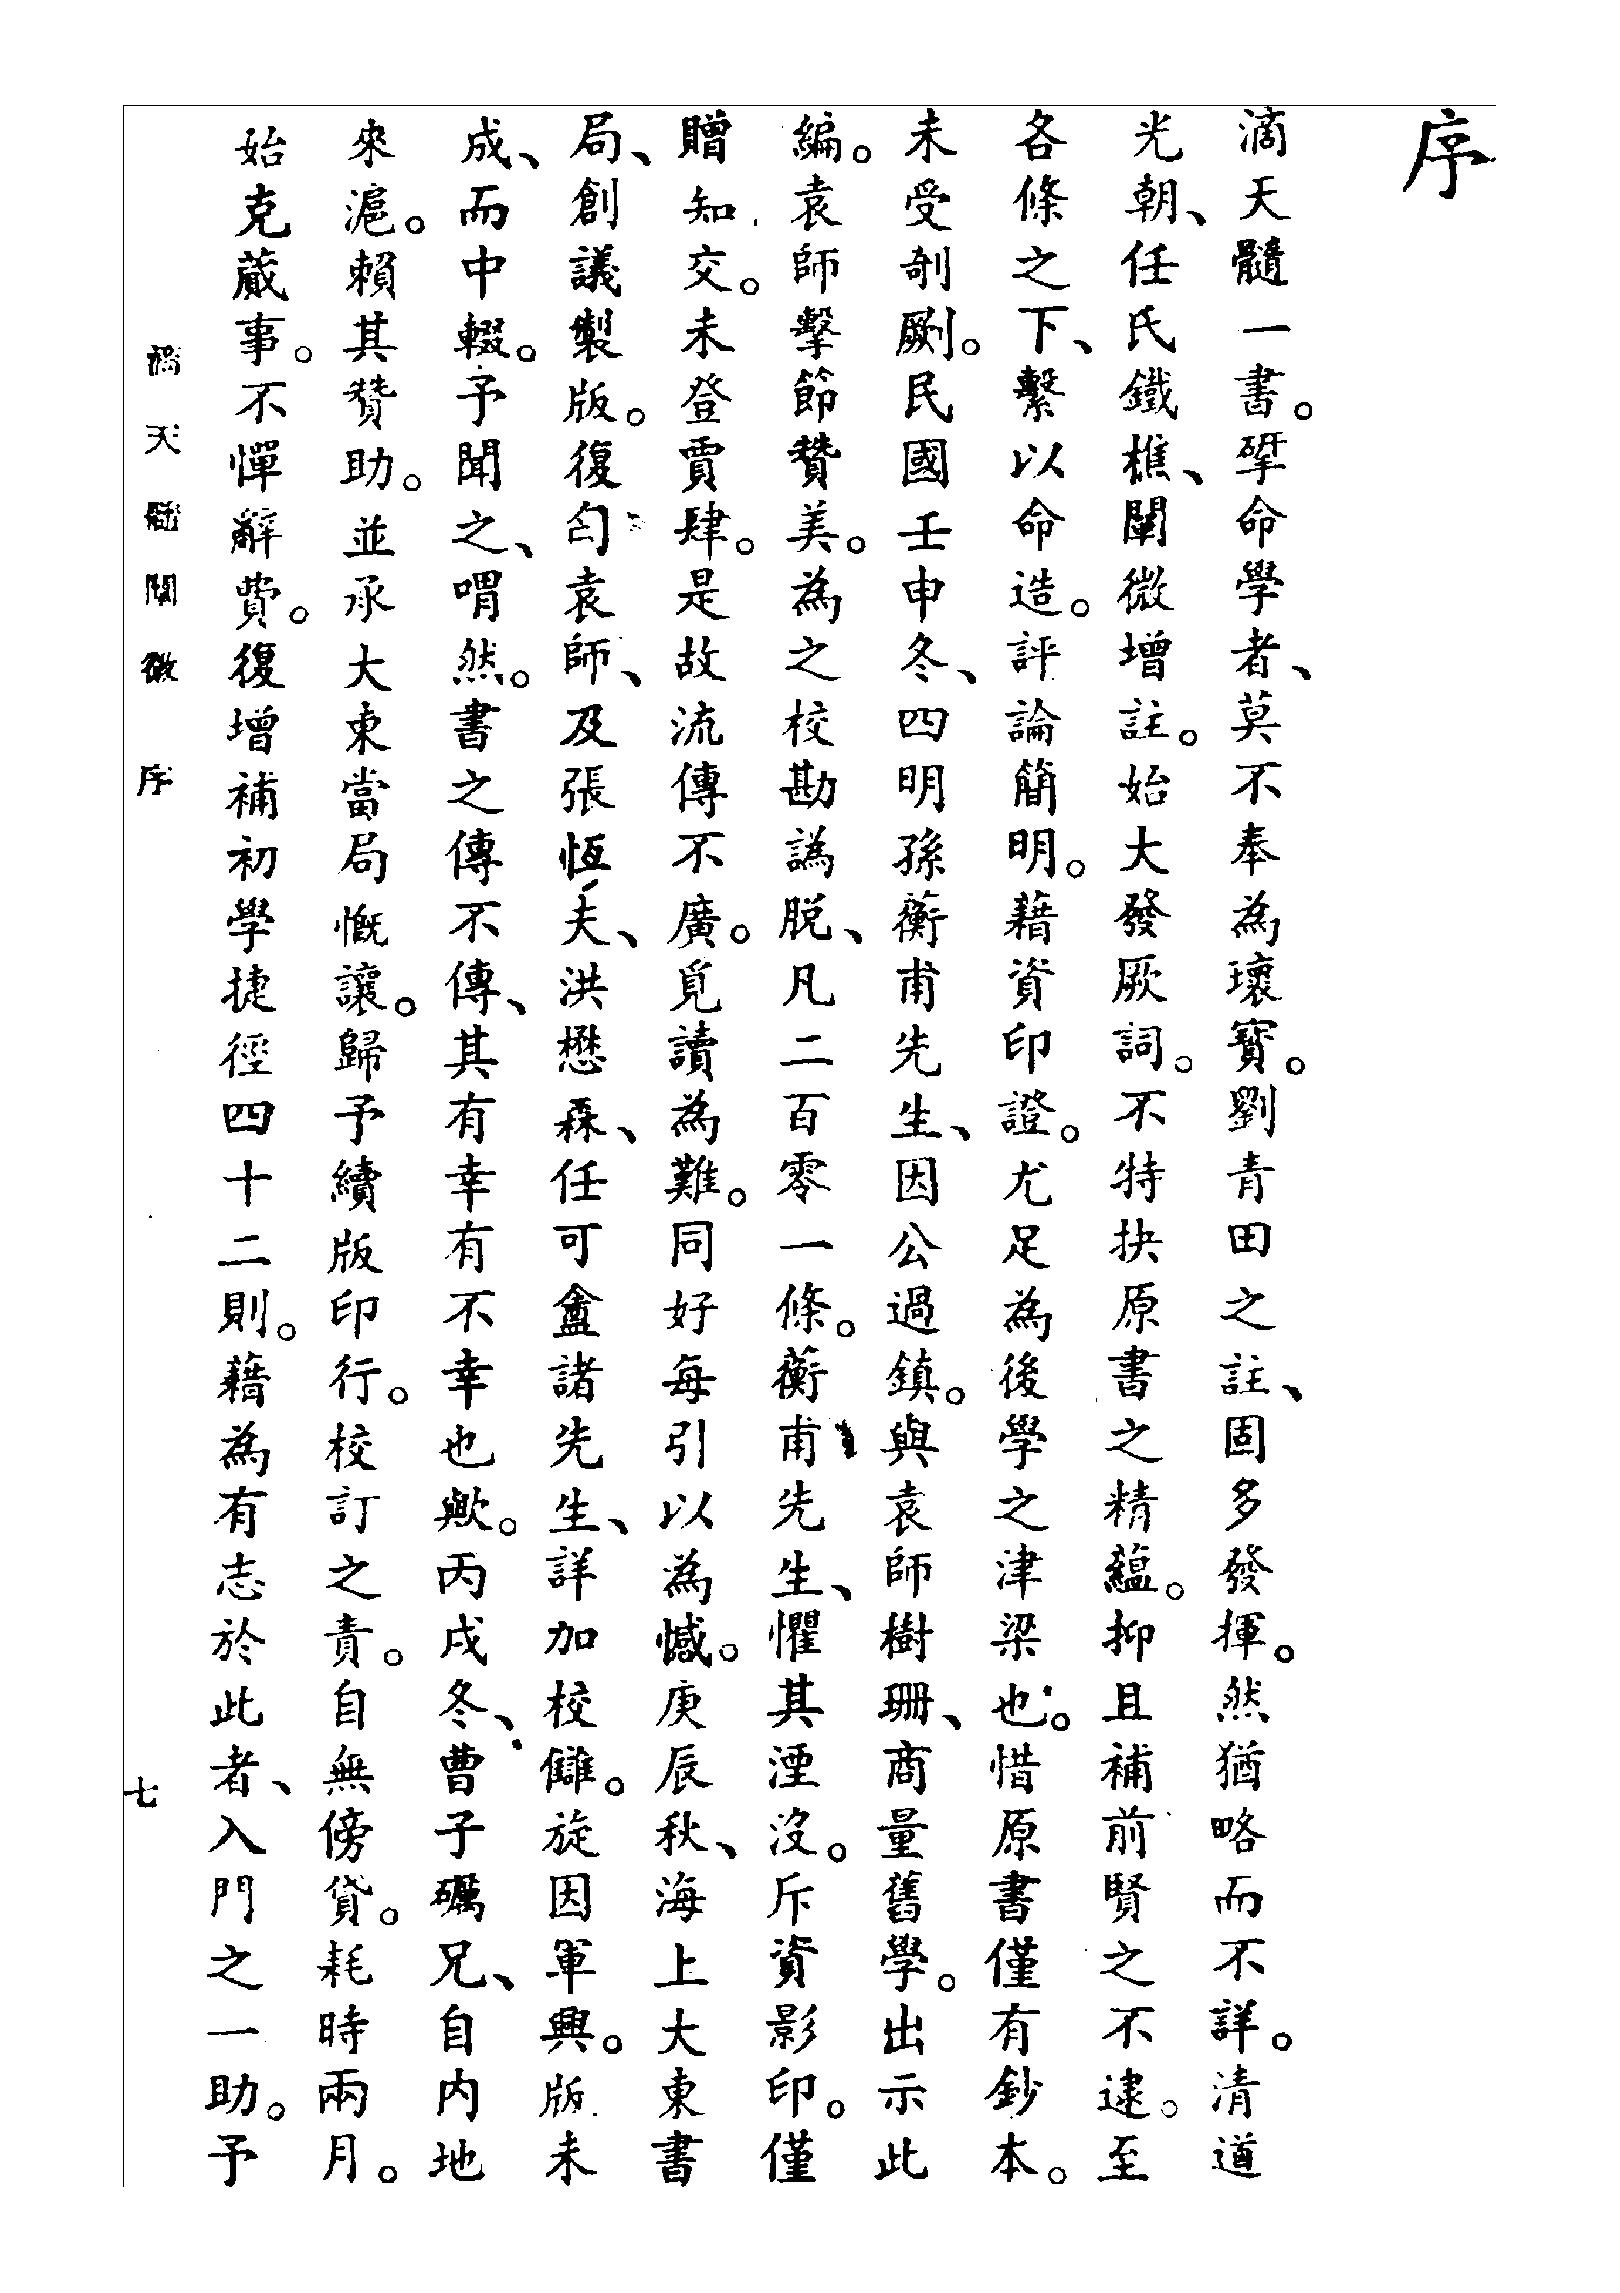 序
滴天髓一書。揅命學者、莫不奉為瓌寳。劉青田之註、固多發揮。然猶略而不詳。清道
光朝、任氏鐵樵、闡微增註。始大發厥詞。不特抉原書之精蘊。抑且補前賢之不逮。至
各條之下、繫以命造。評論簡明。藉資印證。尤足為後學之津梁也。惜原書僅有鈔本。
未受剞劂。民國壬申冬、四明孫蘅甫先生、因公過鎮。與袁師樹珊、商量舊學。出示此
編。袁師擊節贊美。為之校勘譌脱、凡二百零一條。蘅甫先生、懼其湮沒。斥資影印。僅
贈知交。未登賈肆。是故流傳不廣。覓讀為難。同好每引以為憾。庚辰秋、海上大東書
局、創議製版。復匄袁師、及張恆夫、洪懋森、任可盦諸先生、詳加校讎。旋因軍興。版未
成、而中輟。予聞之、喟然。書之傳不傳、其有幸有不幸也歟。丙戌冬、曹子礪兄、自内地
來滬。賴其贊助。並承大東當局慨讓。歸予續版印行。校訂之責。自無傍貸。耗時兩月。
始克蕆事。不憚辭費。復增補初學捷徑四十二則。藉為有志於此者、入門之一助。予
滴天髓闡微 序 七